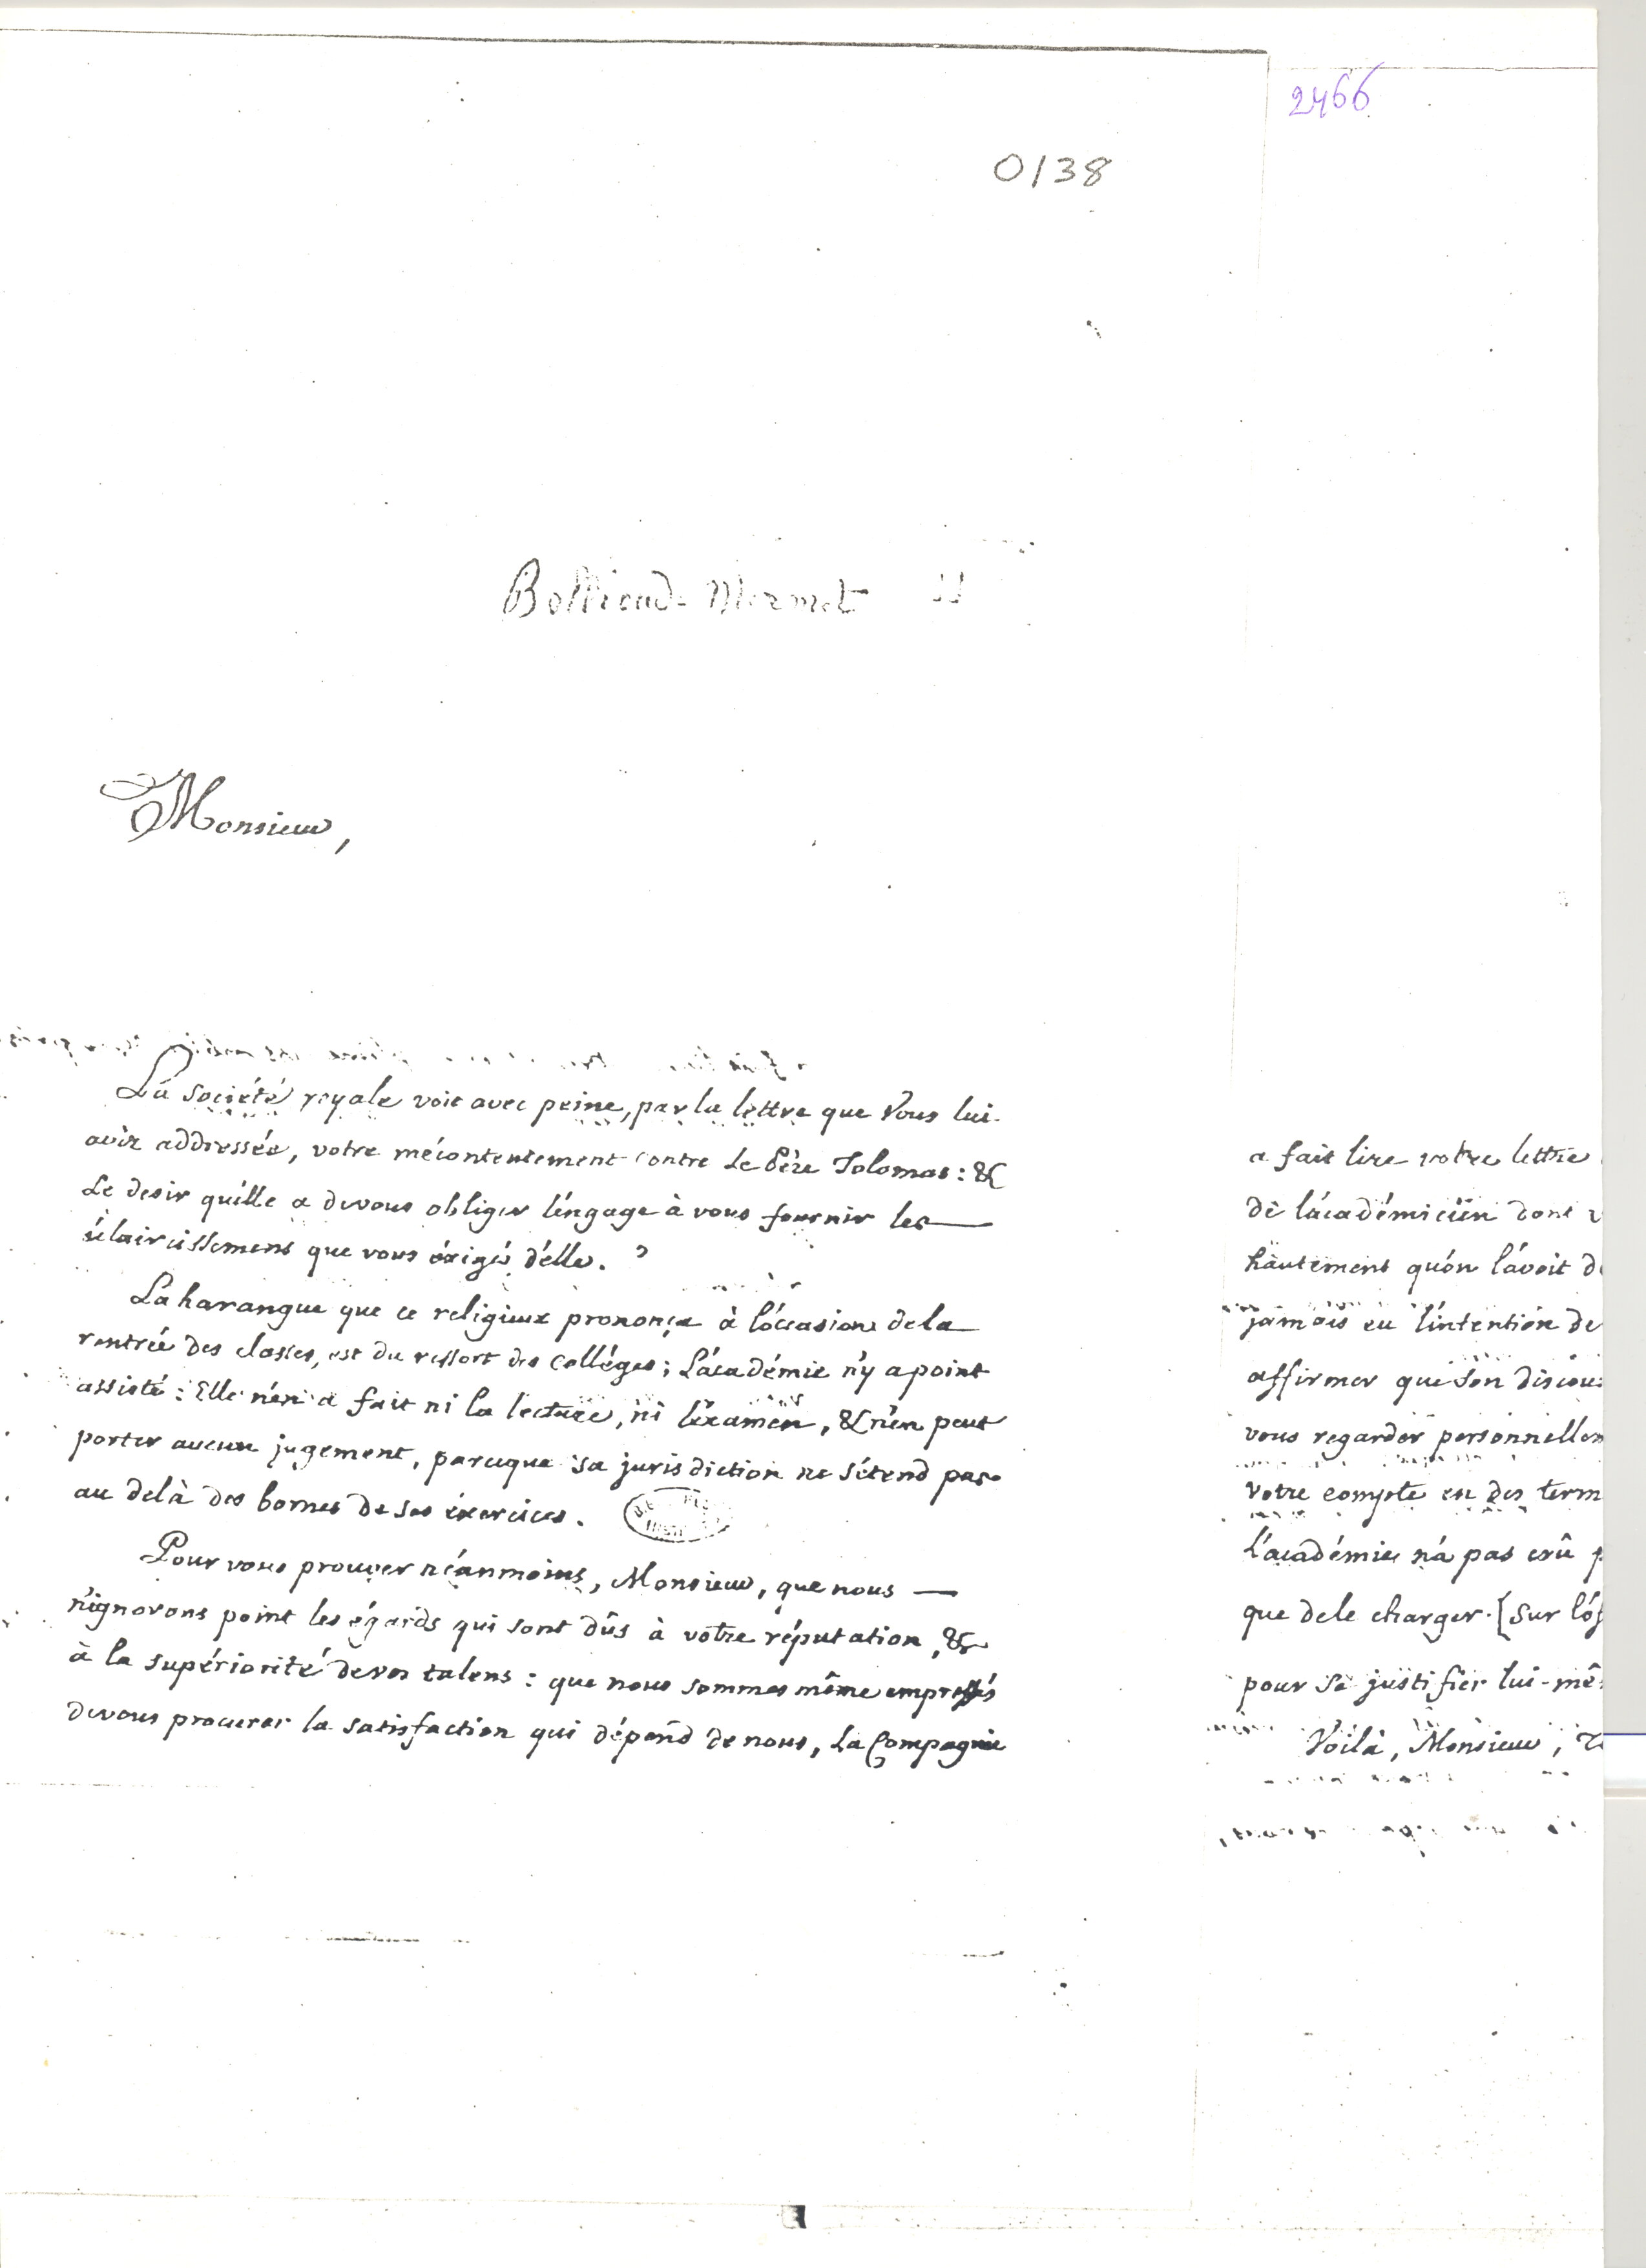 2466
0138
Bollioud-Mermet
Monsieur,
La société royale voit avec peine, par la lettre que Vous lui
avéz addressée, votre mécontentement contre Le Pére Tolomas: &
Le desir qu'elle a de vous obliger l'engage à vous fournir les
éclaircissemens que vous éxigés d'elle.
La harangue que ce religieux prononça à l'occasion de la
rentrée des classes, est du ressort des colléges; L'académie n'y a point
assisté: Elle n'en a fait ni la lecture, ni l'éxamen, & n'en peut
porter aucun jugement, parceque sa jurisdiction ne s'étend pas
au delà des bornes de ses éxercices.
Pour vous prouver néanmoins, Monsieur, que nous
n'ignorons point les égards qui sont dûs à votre réputation, &
à la supériorité de vos talens: que nous sommes même empressés
de vous procurer la satisfaction qui dépend de nous, La Compagnie
a fait lire votre lettre
de l'académicien dont
hautement qu'on l'avoit d
jamais eu l'intention de
affirmer que son discou
vous regarder personnellem
votre compte en des term
L'académie n'a pas crû p
que de le charger (sur l'of
pour se justifier lui-mê
Voilà, Monsieur,